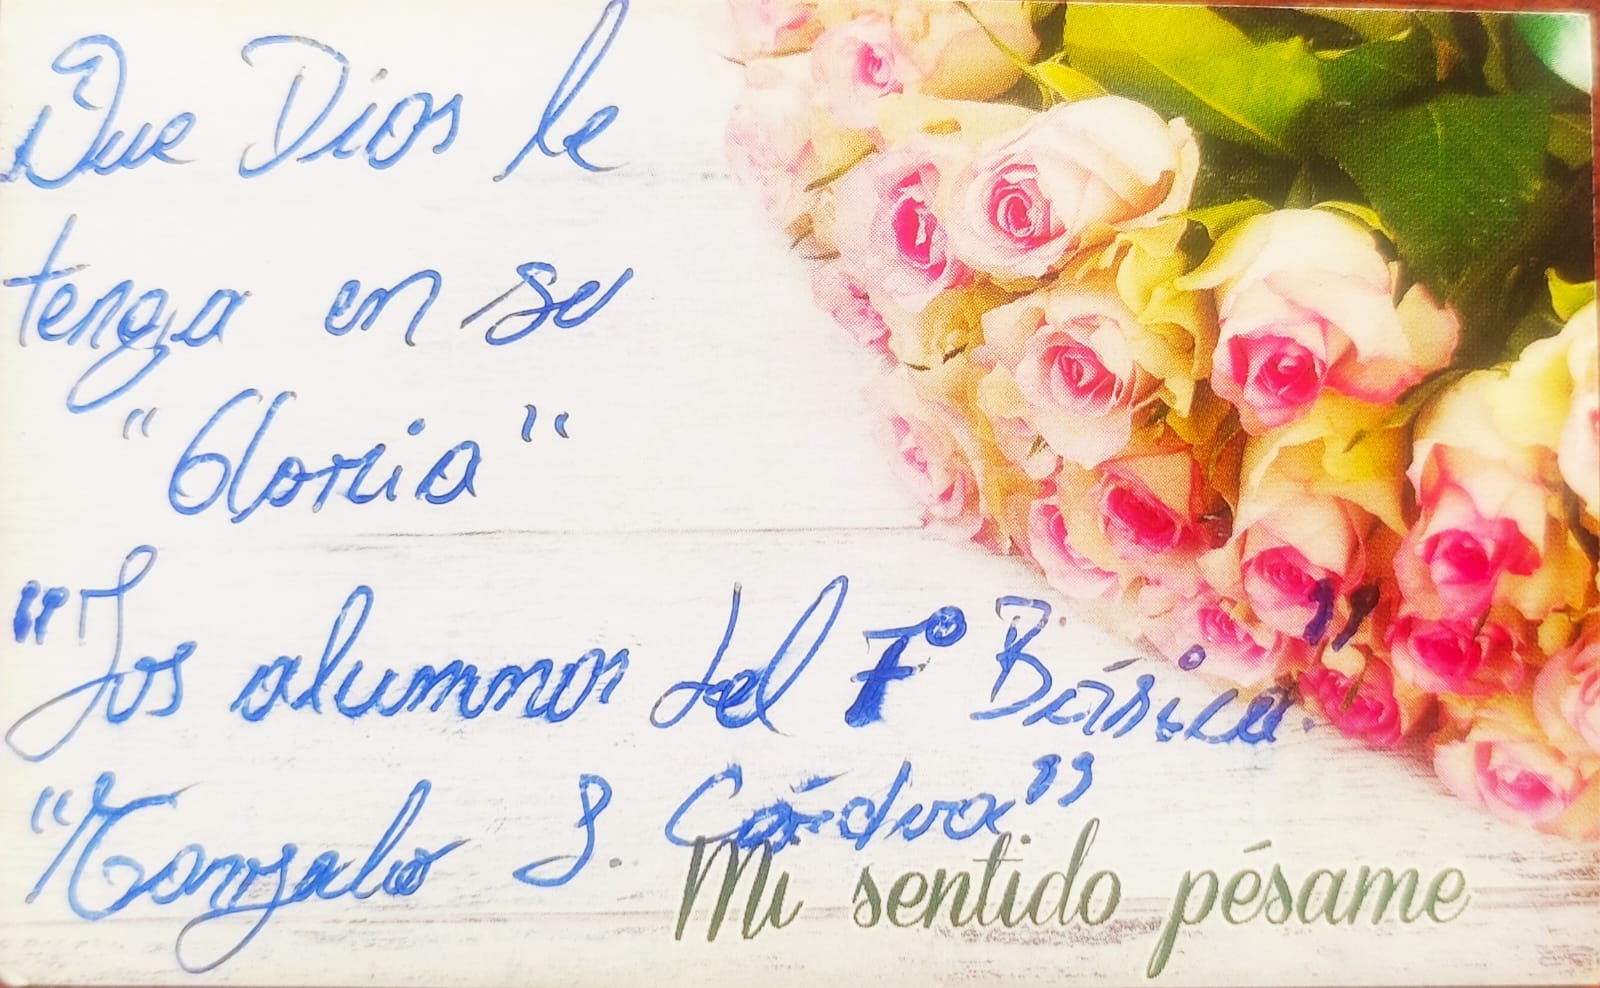 Que Dios le
tenga en su
"Gloria"
"Los alumnos del 7º Básica."
"Gonzalo S. Córdva"
Mi sentido pésame